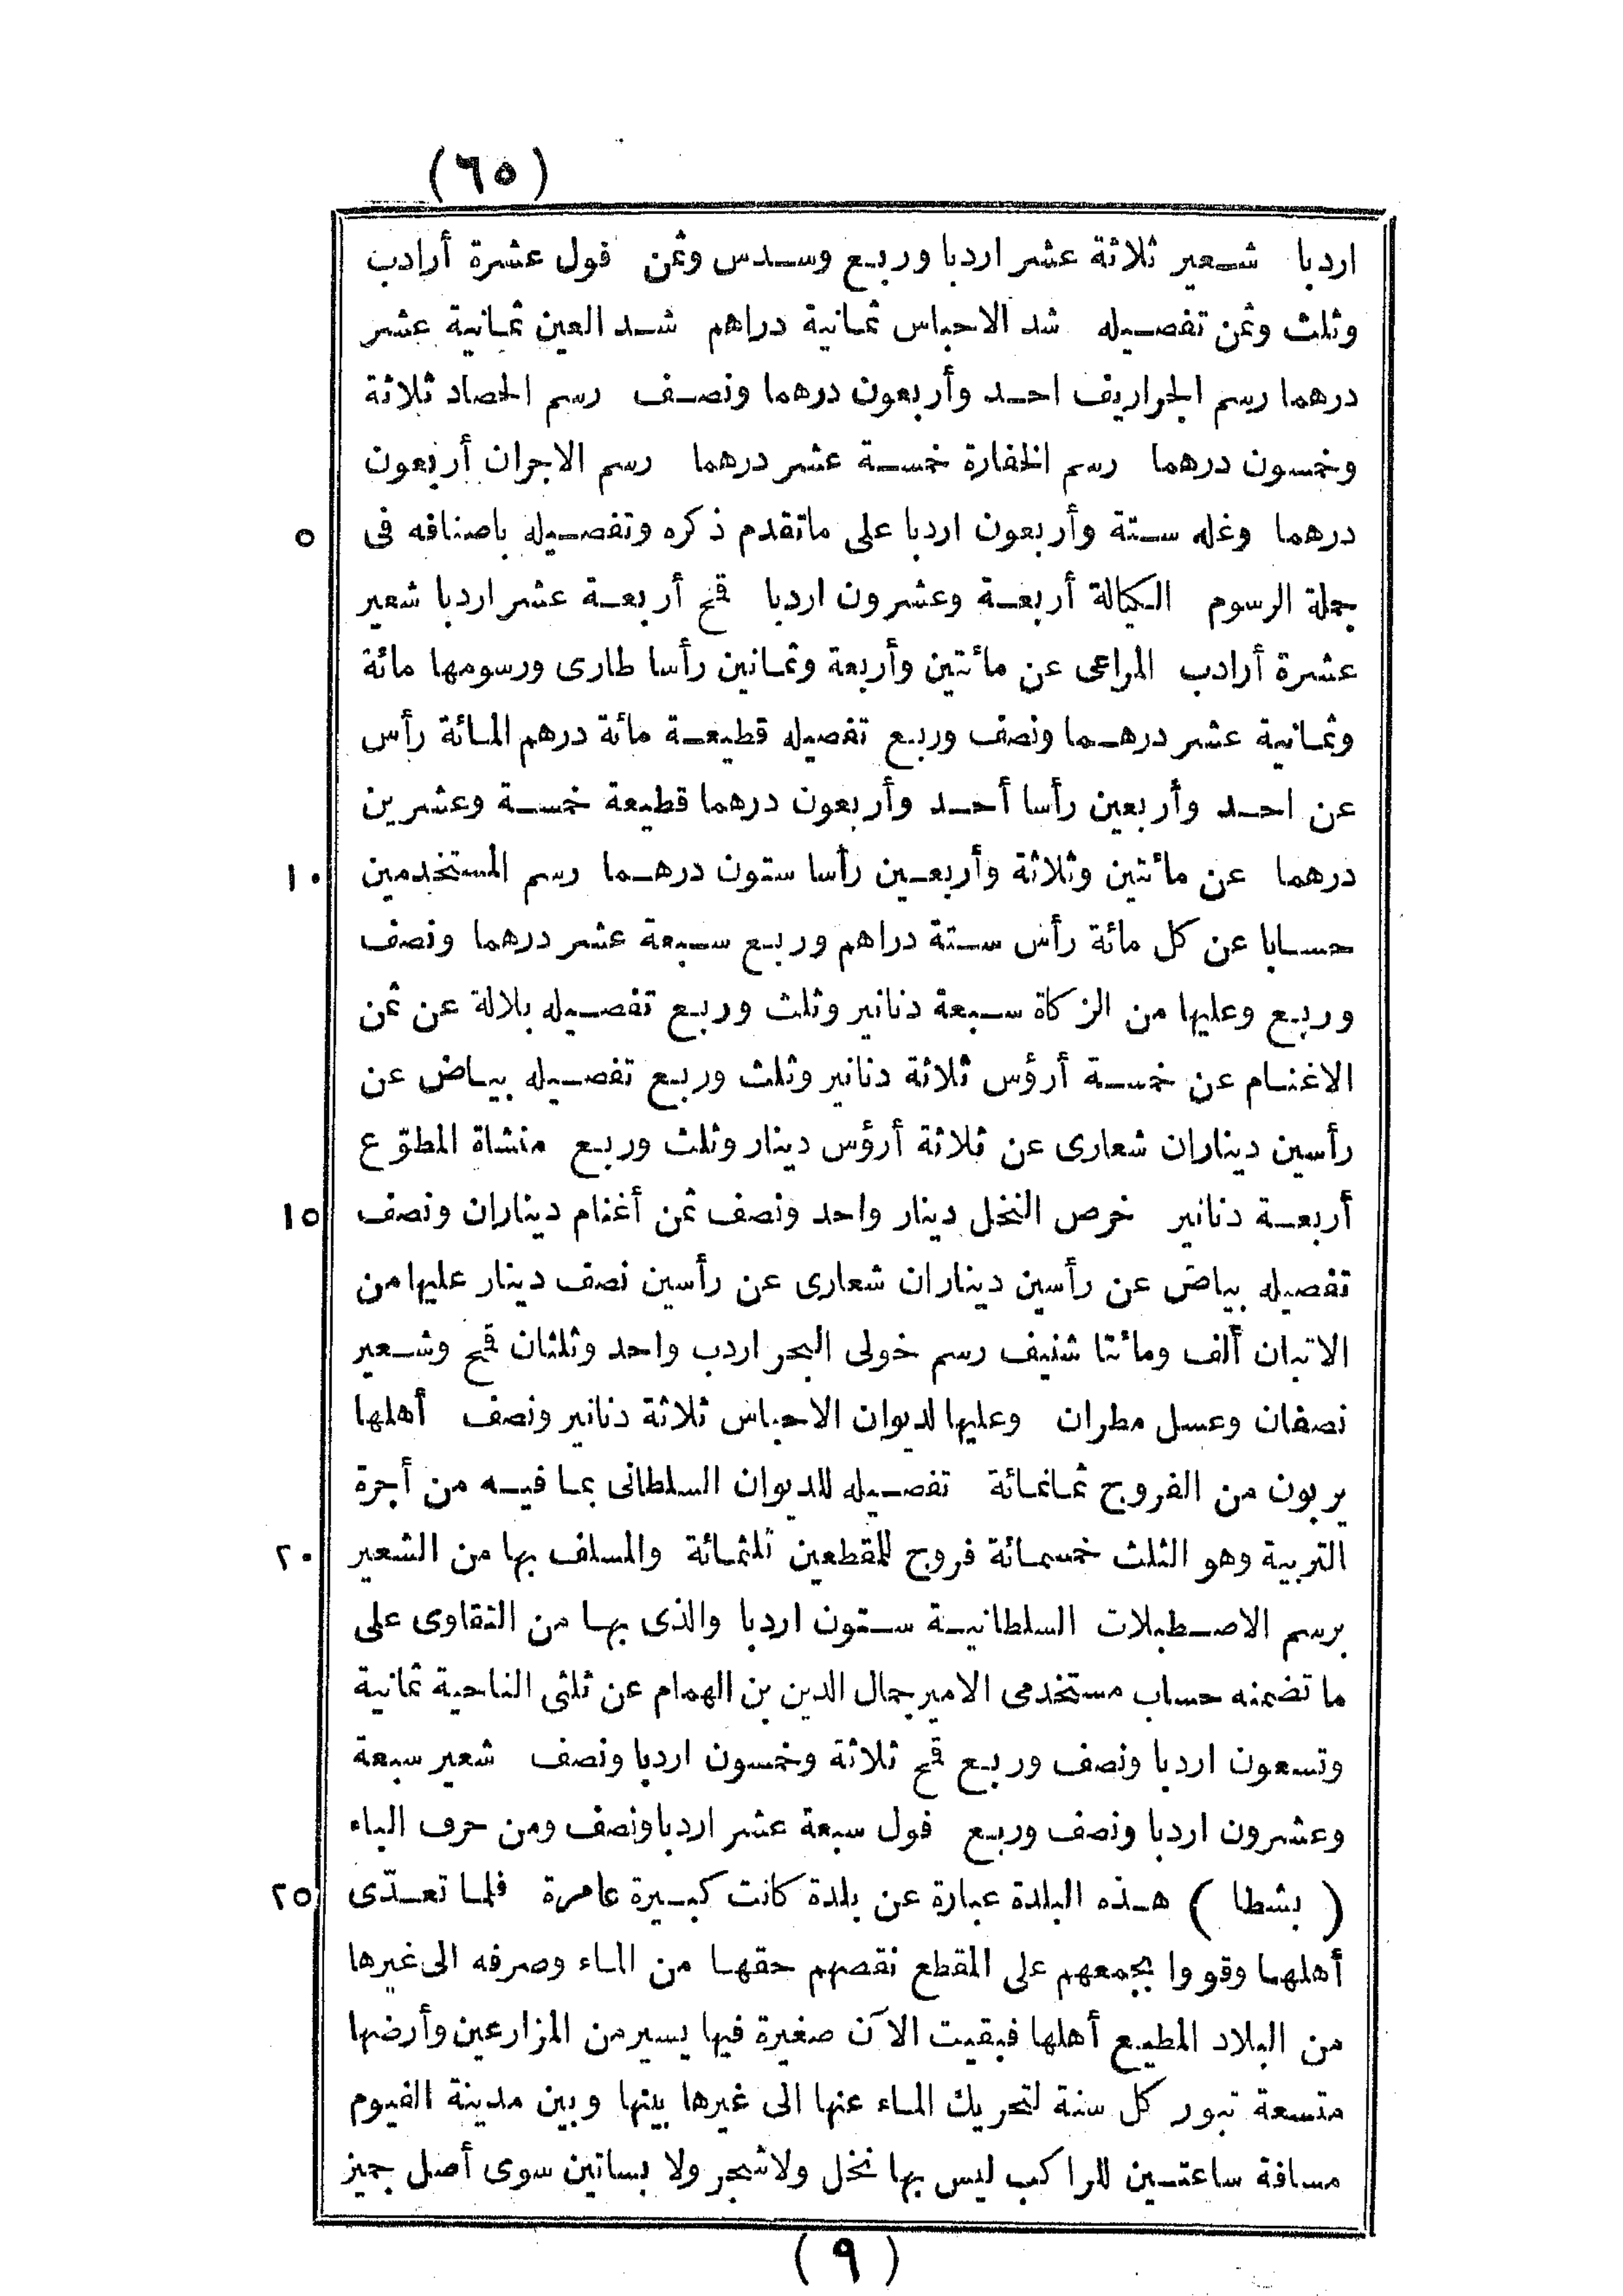 (٦٥)
اردبا شعير ثلاثة عشر اردبا وربع وسدس وثمن فول عشرة أرادب
وثلث وثمن تفصيله شد الاحباس ثمانية دراهم شد العين ثمانية عشر
درهما رسم الجراريف احد وأربعون درهما ونصف رسم الحصاد ثلاثة
وخمسون درهما رسم الخفارة خمسة عشر درهما رسم الاجران أربعون
درهما وغله ستة وأربعون اردبا على ماتقدم ذكره وتفصيله باصنافه فى ٥
جملة الرسوم الكيالة أربعة وعشرون اردبا قمح أربعة عشر اردبا شعير
عشرة أرادب المراعى عن مائتين وأربعة وثمانين رأسا طارى ورسومها مائة
وثمانية عشر درهما ونصف وربع تفصيله قطيعة مائة درهم المائة رأس
عن احد وأربعين رأسا أحد وأربعون درهما قطيعة خمسة وعشرين
درهما عن مائتين وثلاثة وأربعين رأسا ستون درهما رسم المستخدمين ١٠
حسابا عن كل مائة رأس ستة دراهم وربع سبعة عشر درهما ونصف
وربع وعليها من الزكاة سبعة دنانير وثلث وربع تفصيله بلالة عن ثمن
الاغنام عن خمسة أرؤس ثلاثة دنانير وثلث وربع تفصيله بياض عن
رأسين ديناران شعارى عن ثلاثة أرؤس دينار وثلث وربع منشاة المطوّع
أربعة دنانير خرص النخل دينار واحد ونصف ثمن أغنام ديناران ونصف ١٥
تفصيله بياض عن رأسين ديناران شعارى عن رأسين نصف دينار عليها من
الاتبان ألف ومائتا شنيف رسم خولى البحر اردب واحد وثلثان قمح وشعير
نصفان وعسل مطران وعليها لديوان الاحباس ثلاثة دنانير ونصف أهلها
يربون من الفروج ثمانمائة تفصيله للديوان السلطانى بما فيه من أجرة
التربية وهو الثلث خسمائة فروج للمقطعين ثلثمائة والمسلف بها من الشعير ٢٠
برسم الاصطبلات السلطانية ستون اردبا والذى بها من التقاوى على
ما تضمنه حساب مستخدمى الامير جمال الدين بن الهمام عن ثلثى الناحية ثمانية
وتسعون اردبا ونصف وربع قمح ثلاثة وخمسون اردبا ونصف شعير سبعة
وعشرون اردبا ونصف وربع فول سبعة عشر اردبا ونصف ومن حرف الباء
( بشطا ) هذه البلدة عبارة عن بلدة كانت كبيرة عامرة فلما تعدّى ٢٥
أهلها وقووا بجمعهم على المقطع نقصهم حقها من الماء وصرفه الى غيرها
من البلاد المطيع أهلها فبقيت الآن صغيرة فيها يسير من المزارعين وأرضها
متسعة تبور كل سنة لتحريك الماء عنها الى غيرها بينها وبين مدينة الفيوم
مسافة ساعتين للراكب ليس بها نخل ولا شجر ولا بساتين سوى أصل جميز
(٩)